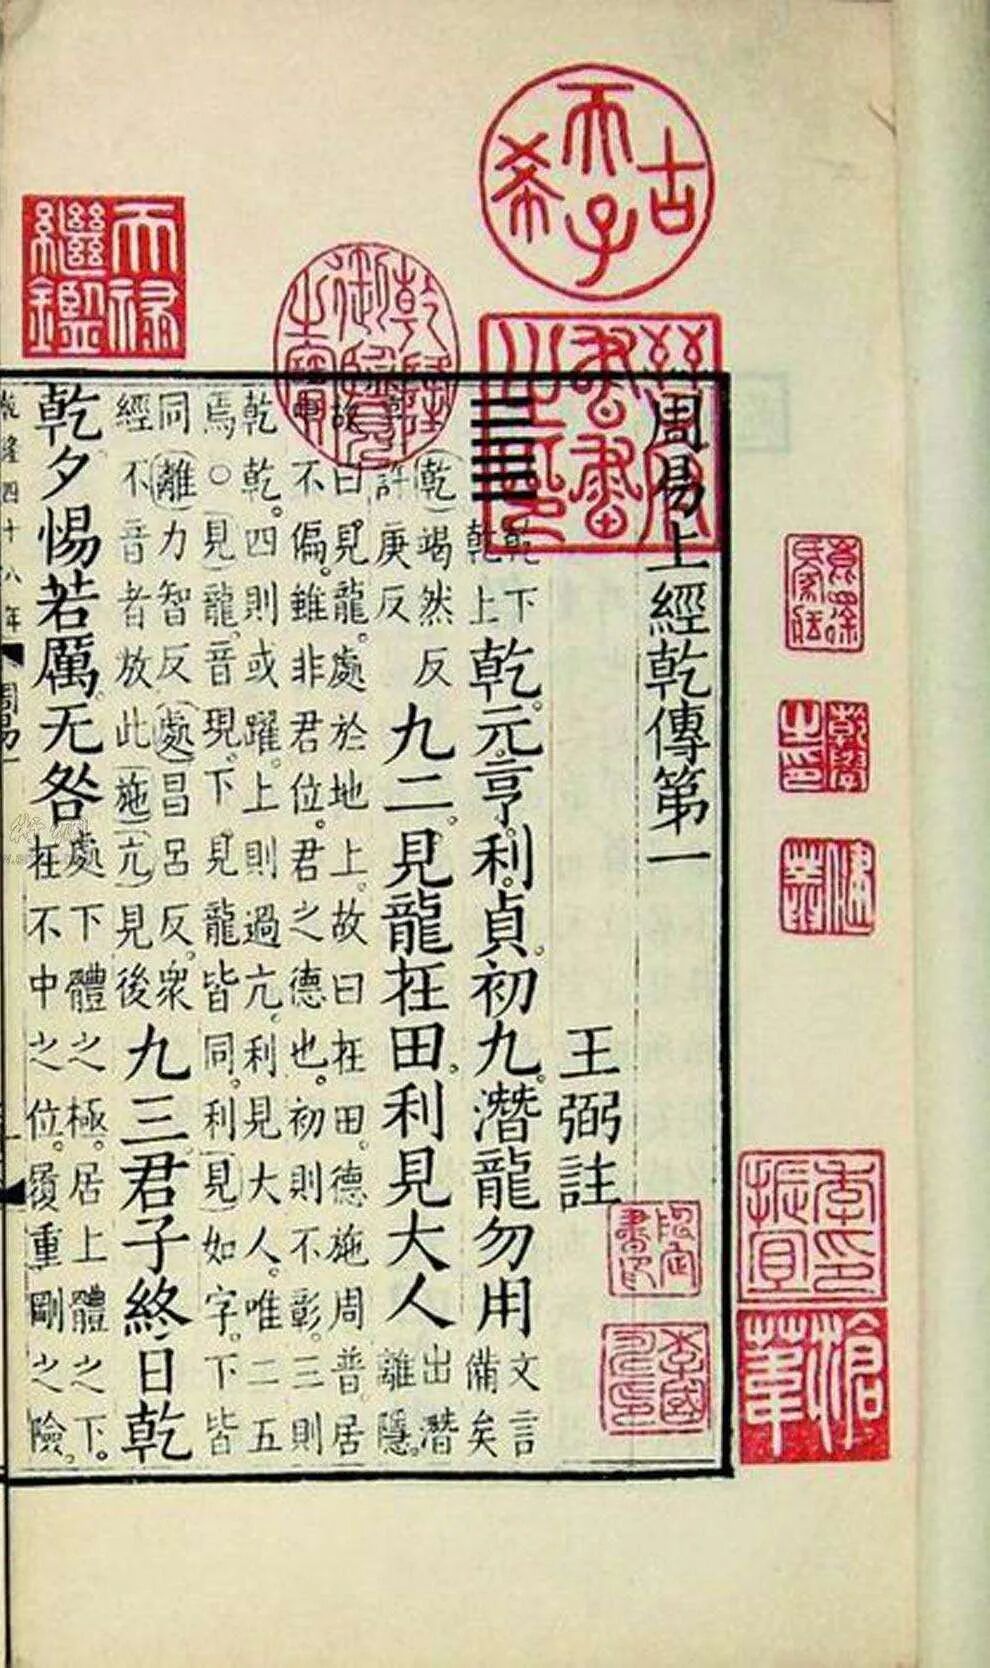 古希天子
天祿繼鑑
乾隆御覽之寶
晉府書畫之印
周易上經乾傳第一
王弼註
䷀乾下乾上乾。元。亨。利。貞。初九。潛龍勿用文言備矣
(乾)竭然反許庚反九二。見龍在田。利見大人出潛離隱。
故曰見龍。處於地上。故曰在田。德施周普居
中不偏。雖非君位。君之德也。初則不彰。三則
乾乾。四則或躍。上則過亢。利見大人。唯二五
焉。○見龍。音現。下見龍皆同。利(見)如字。下皆
同(離)力智反(處)昌呂反。衆
經不音者放此(施)(亢)見後九三君子終日乾
乾夕惕若厲。无咎處下體之極。居上體之下。
在不中之位。履重剛之險。
乾隆四十八年
周易一
乾學之印
健菴
季振宜印
滄葦